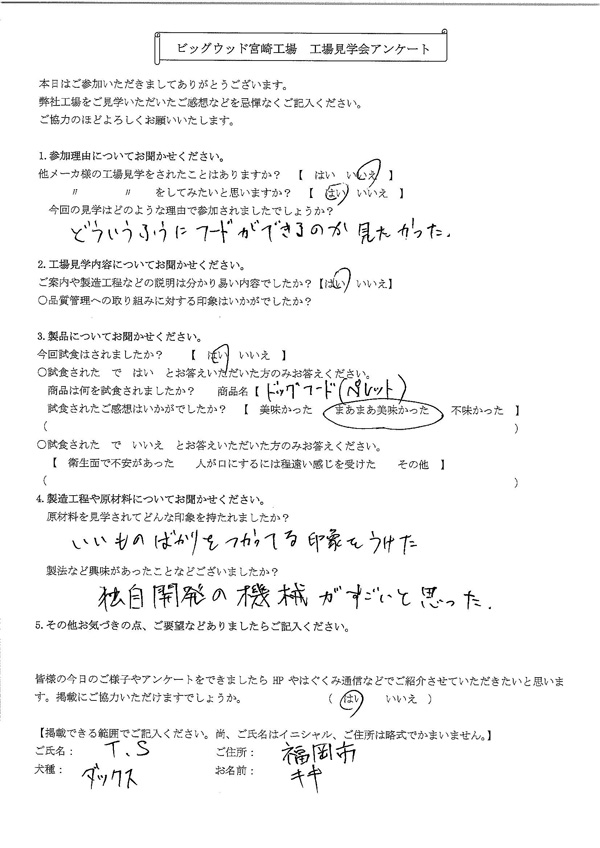 ビッグウッド宮崎工場　工場見学会アンケート
本日はご参加いただきましてありがとうございます。
弊社工場をご見学いただいたご感想などを忌憚なくご記入ください。
ご協力のほどよろしくお願いいたします。
1.参加理由についてお聞かせください。
他メーカ様の工場見学をされたことはありますか？　【　はい　いいえ　】
〃　　〃　　をしてみたいと思いますか？　【　はい　いいえ　】
今回の見学はどのような理由で参加されましたでしょうか？
どういうふうにフードができるのか見たかった.
2.工場見学内容についてお聞かせください。
ご案内や製造工程などの説明は分かり易い内容でしたか？【はい　いいえ】
○品質管理への取り組みに対する印象はいかがでしたか？
3.製品についてお聞かせください。
今回試食はされましたか？　【　はい　いいえ　】
○試食された　で　はい　とお答えいただいた方のみお答えください。
商品は何を試食されましたか？　商品名【ドッグフード(ペレット)
試食されたご感想はいかがでしたか？　【　美味かった　まあまあ美味かった　不味かった　】
(　)
○試食された　で　いいえ　とお答えいただいた方のみお答えください。
【　衛生面で不安があった　人が口にするには程遠い感じを受けた　その他　】
(　)
4.製造工程や原材料についてお聞かせください。
原材料を見学されてどんな印象を持たれましたか？
いいものばかりをつかってる印象をうけた
製法など興味があったことなどございましたか？
独自開発の機械がすごいと思った.
5.その他お気づきの点、ご要望などありましたらご記入ください。
皆様の今日のご様子やアンケートをできましたら HP やはぐくみ通信などでご紹介させていただきたいと思いま
す。掲載にご協力いただけますでしょうか。　（　はい　いいえ　）
【掲載できる範囲でご記入ください。尚、ご氏名はイニシャル、ご住所は略式でかまいません。】
ご氏名：　T.S　ご住所：　福岡市
犬種：　ダックス　お名前：　キキ